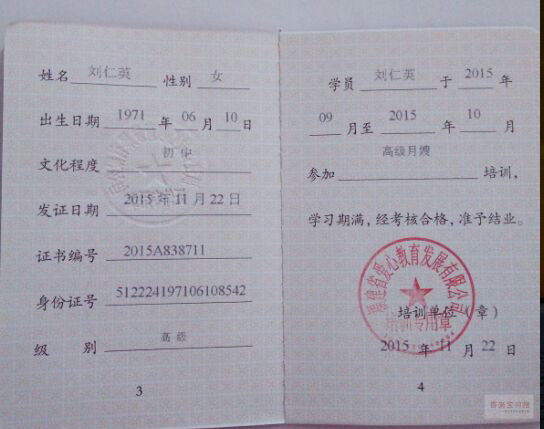 姓名 刘仁英 性别 女
出生日期 1971 年 06 月 10 日
文化程度 初中
发证日期 2015 年 11 月 22 日
证书编号 2015A838711
身份证号 512224197106108542
级 别 高级
3
学员 刘仁英 于 2015 年
09 月至 2015 年 10 月
高级月嫂
参加 培训,
学习期满,经考核合格,准予结业。
福建省爱心教育发展有限公司
培训单位(章)
培训专用章
2015 年 11 月 22 日
4